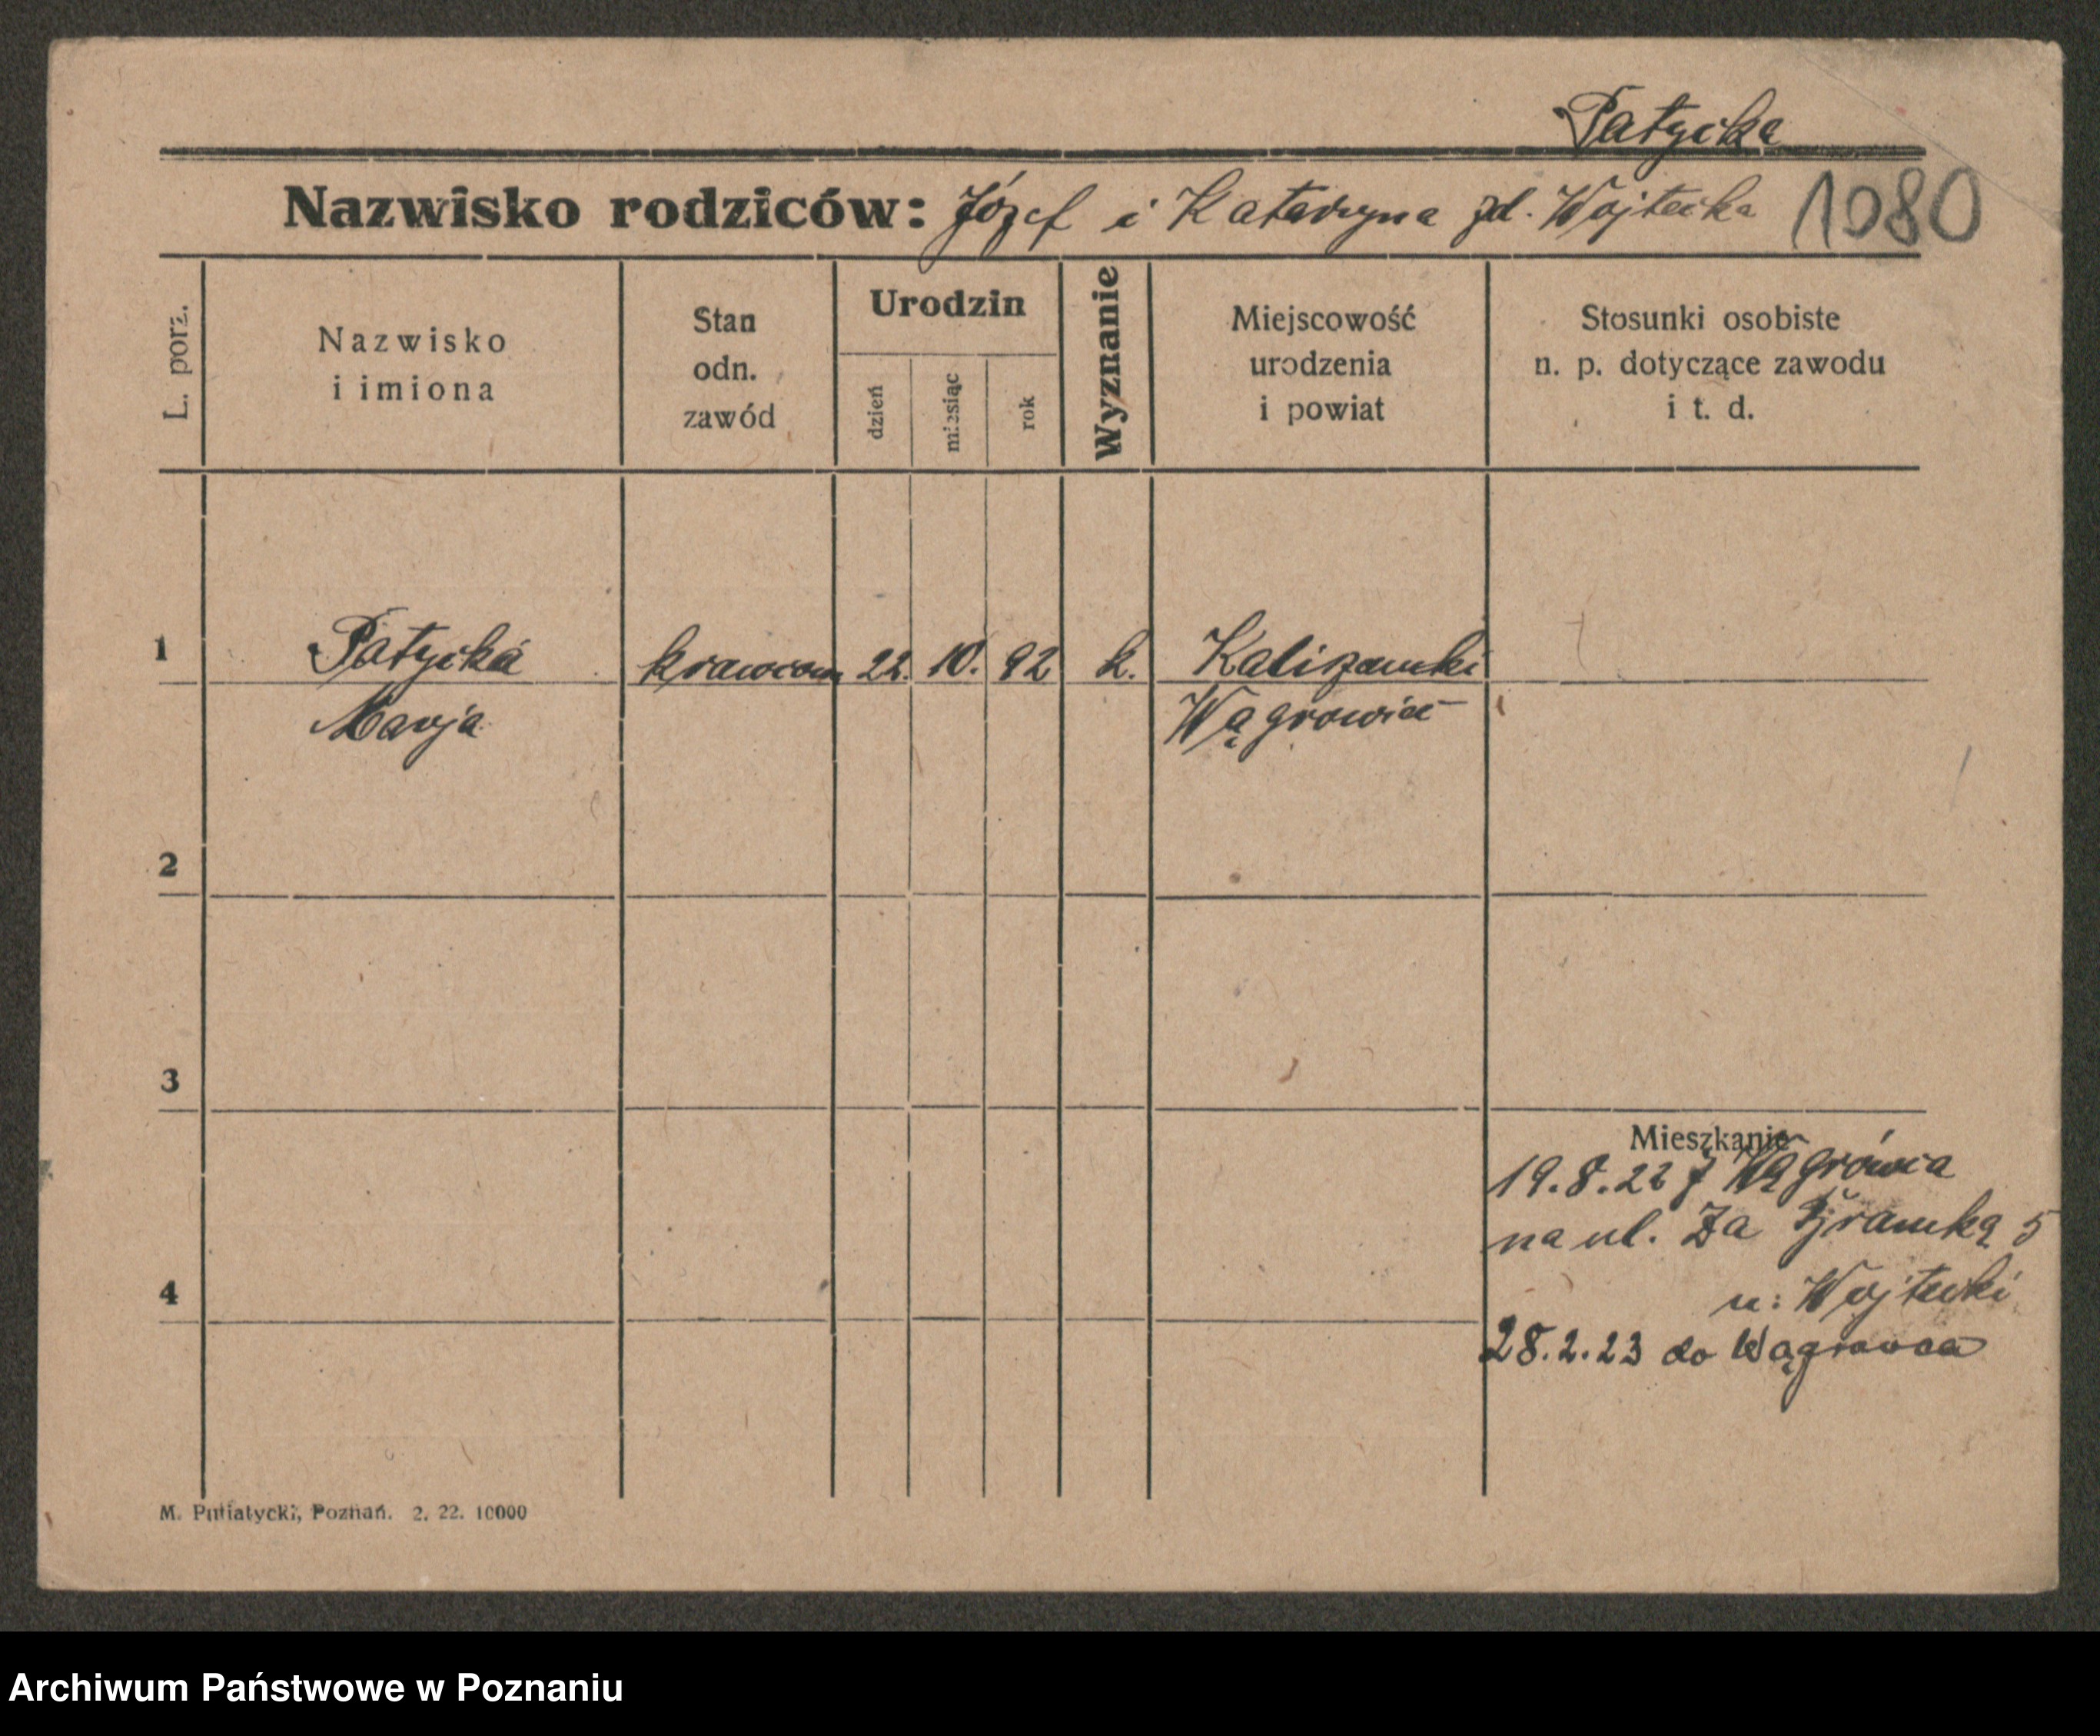 Patycka
Nazwisko rodziców: Józef i Katarzyna zd. Wojtecka 1080
L. porz.
Nazwisko
i imiona
Stan
odn.
zawód
Urodzin
dzień
miesiąc
rok
Wyznanie
Miejscowość
urodzenia
i powiat
Stosunki osobiste
n. p. dotyczące zawodu
i t. d.
1 Patycka krawcowa 22. 10. 92 k. Kaliszanki
Marja Wągrowiec
2
3
Mieszkanie
19.8.22 z Wągrówca
na ul. Za Bramką 5
u: Wojtecki
4
28.2.23 do Wągrowca
M. Putiatycki, Poznań. 2. 22. 10000
Archiwum Państwowe w Poznaniu